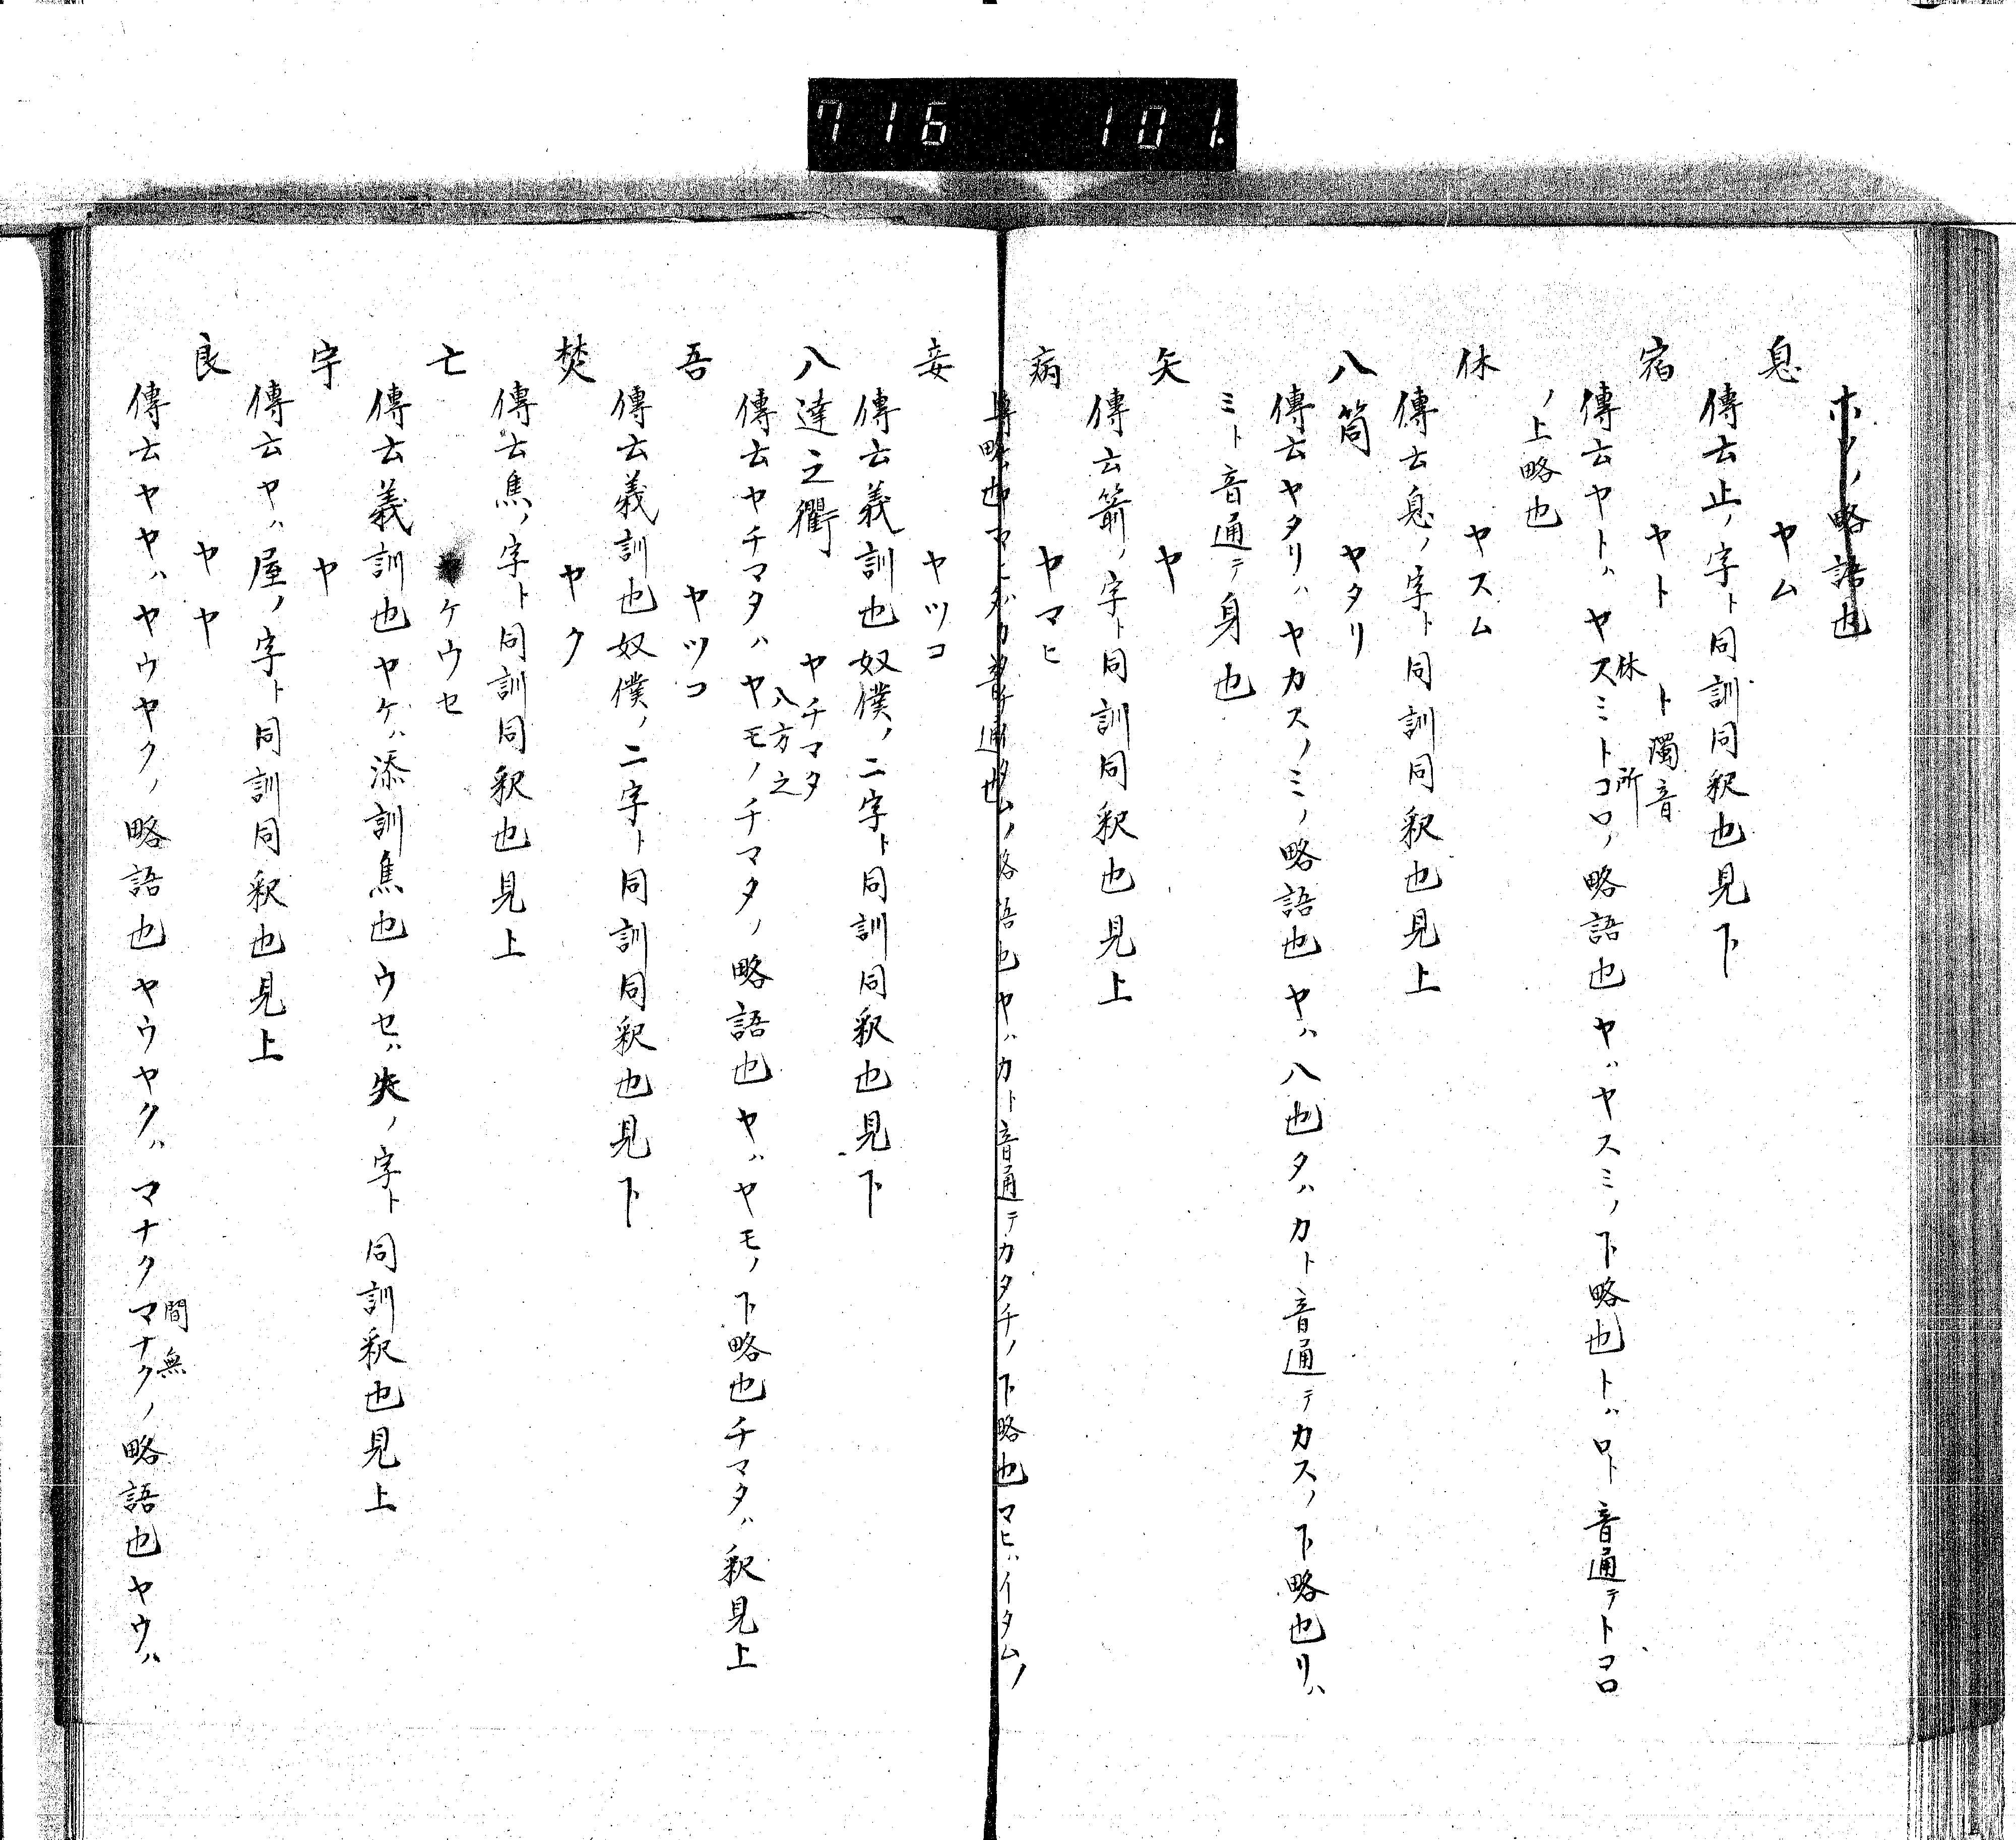 716 101.
ホノノ略語也
息 ヤム
傳云止ノ字ト同訓同釈也見下
宿 ヤト ト濁音
傳云ヤトハヤスミトコロノ略語也ヤハヤスミノ下略也トハロト音通テトコロ
休 所
ノ上略也
休 ヤスム
傳云息ノ字ト同訓同釈也見上
八筒 ヤタリ
傳云ヤタリハヤカスノミノ略語也ヤハ八也タハカト音通テカスノ下略也リハ
ミト音通テ身也
矢 ヤ
傳云箭ノ字ト同訓同釈也見上
病 ヤマヒ
略語也ヤハカト音通テカタチノ下略也マヒハイタムノ
上略也
妾 ヤツコ
傳云義訓也奴僕ノ二字ト同訓同釈也見下
八達之衢 ヤチマタ
八方之
傳云ヤチマタハヤモノチマタノ略語也ヤハヤモノ下略也チマタハ釈見上
吾 ヤツコ
傳云義訓也奴僕ノ二字ト同訓同釈也見下
焚 ヤク
傳云焦ノ字ト同訓同釈也見上
亡 ケウセ
傳云義訓也ヤケハ添訓焦也ウセハ失ノ字ト同訓釈也見上
宇 ヤ
傳云ヤハ屋ノ字ト同訓同釈也見上
良 ヤヤ
傳云ヤヤハヤウヤクノ略語也ヤウヤクハマナクマナクノ略語也ヤウハ
間無